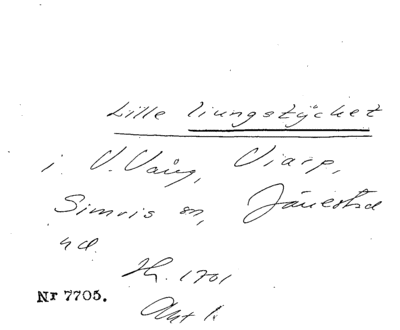 Lille liungstÿcket
i V. Vång, Viarp,
Simris sn, Järrestad
hd
Hr. 1701
Akt 1.
Nr 7705.